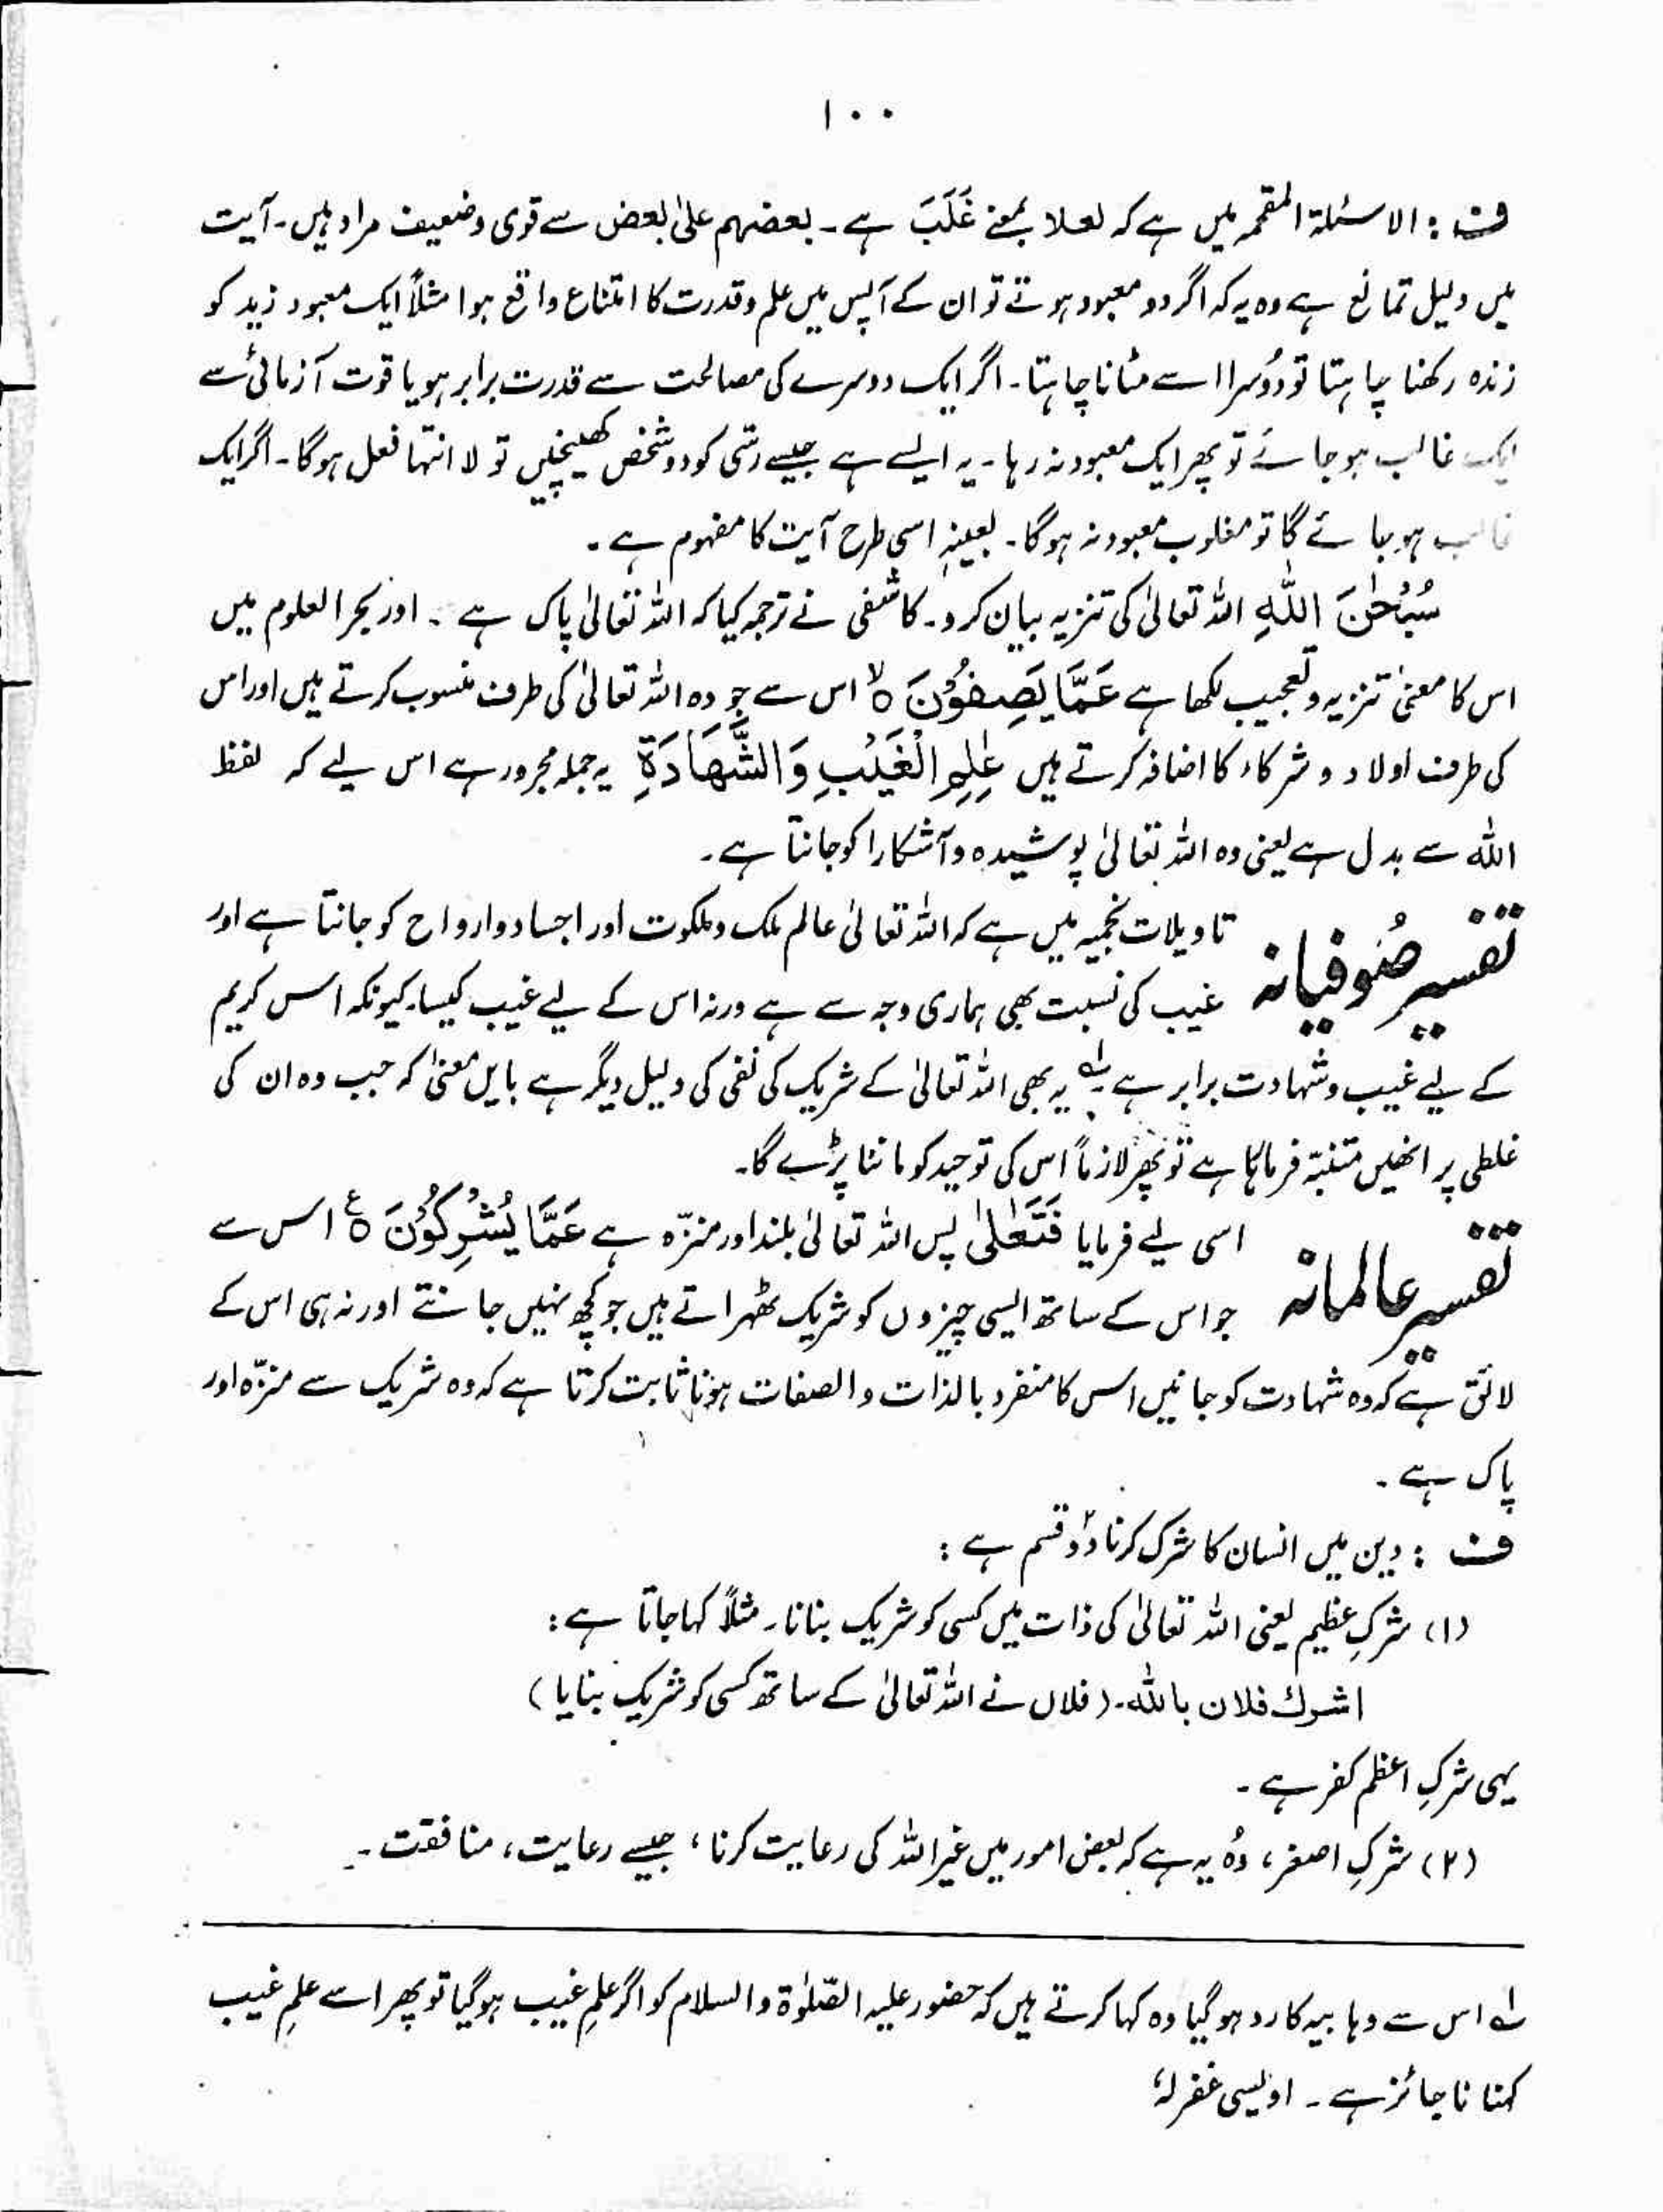 ۱۰۰
ف : الاسئلۃ المقحمہ میں ہے کہ لعلا بمعنے غَلَبَ ہے۔ بعضہم علیٰ بعض سے قوی و ضعیف مراد ہیں۔ آیت
میں دلیل تمانع ہے وہ یہ کہ اگر دو معبود ہوتے تو ان کے آپس میں علم و قدرت کا امتناع واقع ہوا مثلاً ایک معبود زید کو
زندہ رکھنا چاہتا تو دُوسرا اسے مٹانا چاہتا۔ اگر ایک دوسرے کی مصالحت سے قدرت برابر ہو یا قوت آزمائی سے
ایک غالب ہو جائے تو پھر ایک معبود نہ رہا۔ یہ ایسے ہے جیسے رسّی کو دو شخص کھینچیں تو لا انتہا فعل ہوگا۔ اگر ایک
غالب ہو جائے گا تو مغلوب معبود نہ ہوگا۔ بعینہٖ اسی طرح آیت کا مفہوم ہے۔
سُبْحٰنَ اللّٰہِ اللہ تعالیٰ کی تنزیہ بیان کرو۔ کاشفی نے ترجمہ کیا کہ اللہ تعالیٰ پاک ہے۔ اور بحر العلوم میں
اس کا معنیٰ تنزیہ و تعجیب لکھا ہے عَمَّا یَصِفُوْنَ ۙ اس سے جو وہ اللہ تعالیٰ کی طرف منسوب کرتے ہیں اور اس
کی طرف اولاد و شرکاء کا اضافہ کرتے ہیں عٰلِمِ الْغَیْبِ وَالشَّھَادَۃِ یہ جملہ مجرور ہے اس لیے کہ لفظ
اللہ سے بدل ہے یعنی وہ اللہ تعالیٰ پوشیدہ و آشکارا کو جانتا ہے۔
تفسیر صُوفیانہ تاویلات نجمیہ میں ہے کہ اللہ تعالیٰ عالم ملک و ملکوت اور اجساد و ارواح کو جانتا ہے اور
غیب کی نسبت بھی ہماری وجہ سے ہے ورنہ اس کے لیے غیب کیسا۔ کیونکہ اس کریم
کے لیے غیب و شہادت برابر ہے۔ لہ یہ بھی اللہ تعالیٰ کے شریک کی نفی کی دلیل دیگر ہے بایں معنیٰ کہ جب وہ ان کی
غلطی پر انھیں متنبّہ فرما رہا ہے تو پھر لازماً اس کی توحید کو ماننا پڑے گا۔
تفسیر عالمانہ اسی لیے فرمایا فَتَعٰلٰی پس اللہ تعالیٰ بلند اور منزّہ ہے عَمَّا یُشْرِکُوْنَ ۧ اس سے
جو اس کے ساتھ ایسی چیزوں کو شریک ٹھہراتے ہیں جو کچھ نہیں جانتے اور نہ ہی اس کے
لائق ہے کہ وہ شہادت کو جانیں اس کا منفرد بالذات و الصفات ہونا ثابت کرتا ہے کہ وہ شریک سے منزّہ اور
پاک ہے۔
ف : دین میں انسان کا شرک کرنا دو قسم ہے :
(۱) شرکِ عظیم یعنی اللہ تعالیٰ کی ذات میں کسی کو شریک بنانا۔ مثلاً کہا جاتا ہے :
اشرك فلان باللہ۔ (فلاں نے اللہ تعالیٰ کے ساتھ کسی کو شریک بنایا)
یہی شرکِ اعظم کفر ہے۔
(۲) شرکِ اصغر، وُہ یہ ہے کہ بعض امور میں غیر اللہ کی رعایت کرنا ، جیسے رعایت، منافقت۔
لہ اس سے وہابیہ کا رد ہوگیا وہ کہا کرتے ہیں کہ حضور علیہ الصّلوٰۃ والسلام کو اگر علمِ غیب ہو گیا تو پھر اسے علمِ غیب
کہنا ناجائز ہے۔ اویسی غفرلہٗ